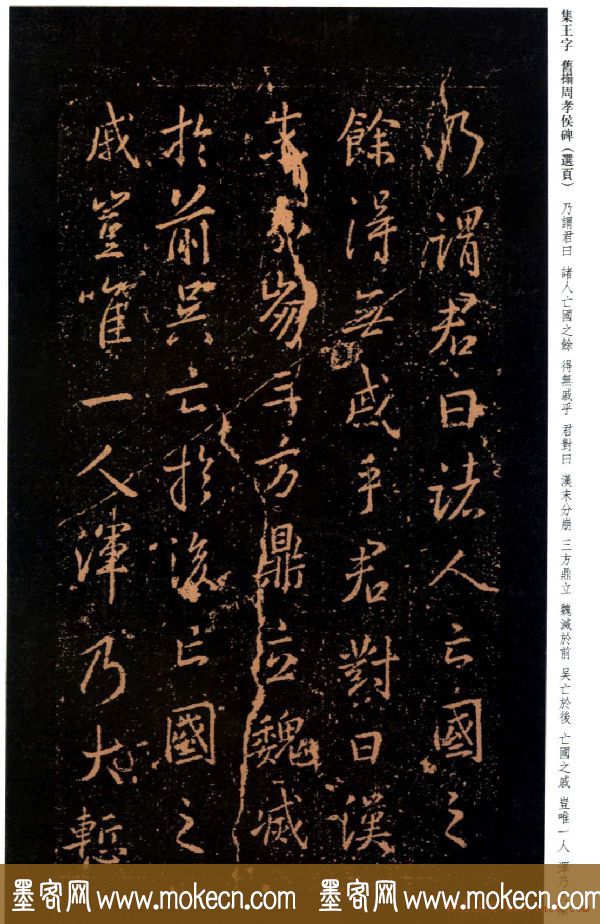 集王字 舊搨周孝侯碑（選頁） 乃謂君曰 諸人亡國之餘 得無戚乎 君對曰 漢末分崩 三方鼎立 魏滅於前 吴亡於後 亡國之戚 豈唯一人 渾乃
乃謂君曰諸人亡國之
餘得無戚乎君對曰漢
末分崩三方鼎立魏滅
於前吴亡於後亡國之
戚豈唯一人渾乃大慙
墨客网 www.mokecn.com 墨客网 www.mokecn.com